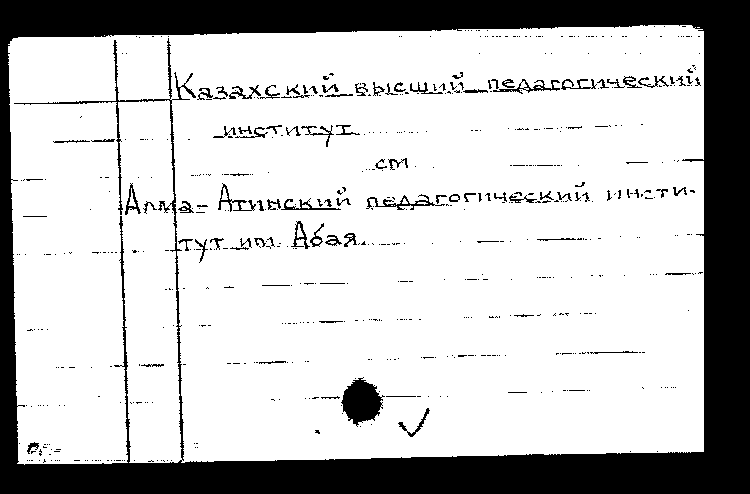 Казахский высший педагогический
институт
см
Алма-Атинский педагогический инсти-
тут им. Абая.